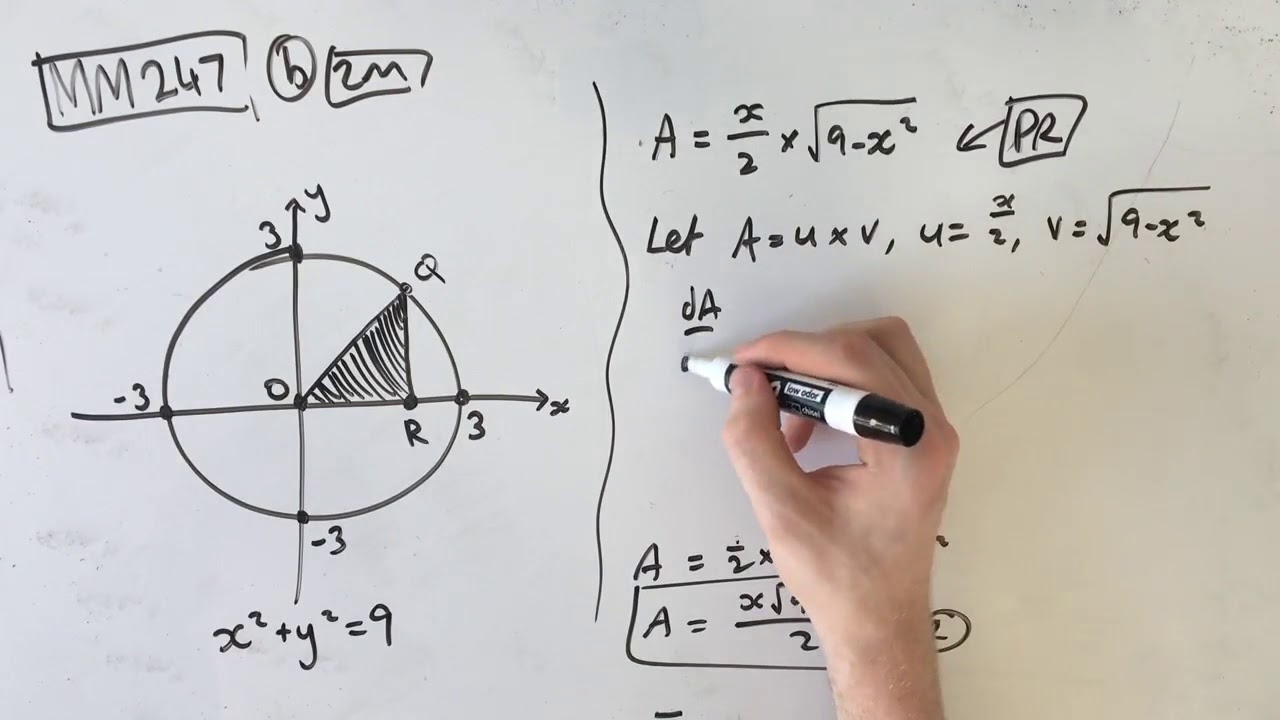 MM247 b 2m
y
3
Q
-3 O R 3 x
-3
x² + y² = 9
A = x/2 × √(9-x²) ← PR
Let A = u × v, u = x/2, v = √(9-x²)
dA
low odor
chisel
A = 1/2 ×
A = x√
2